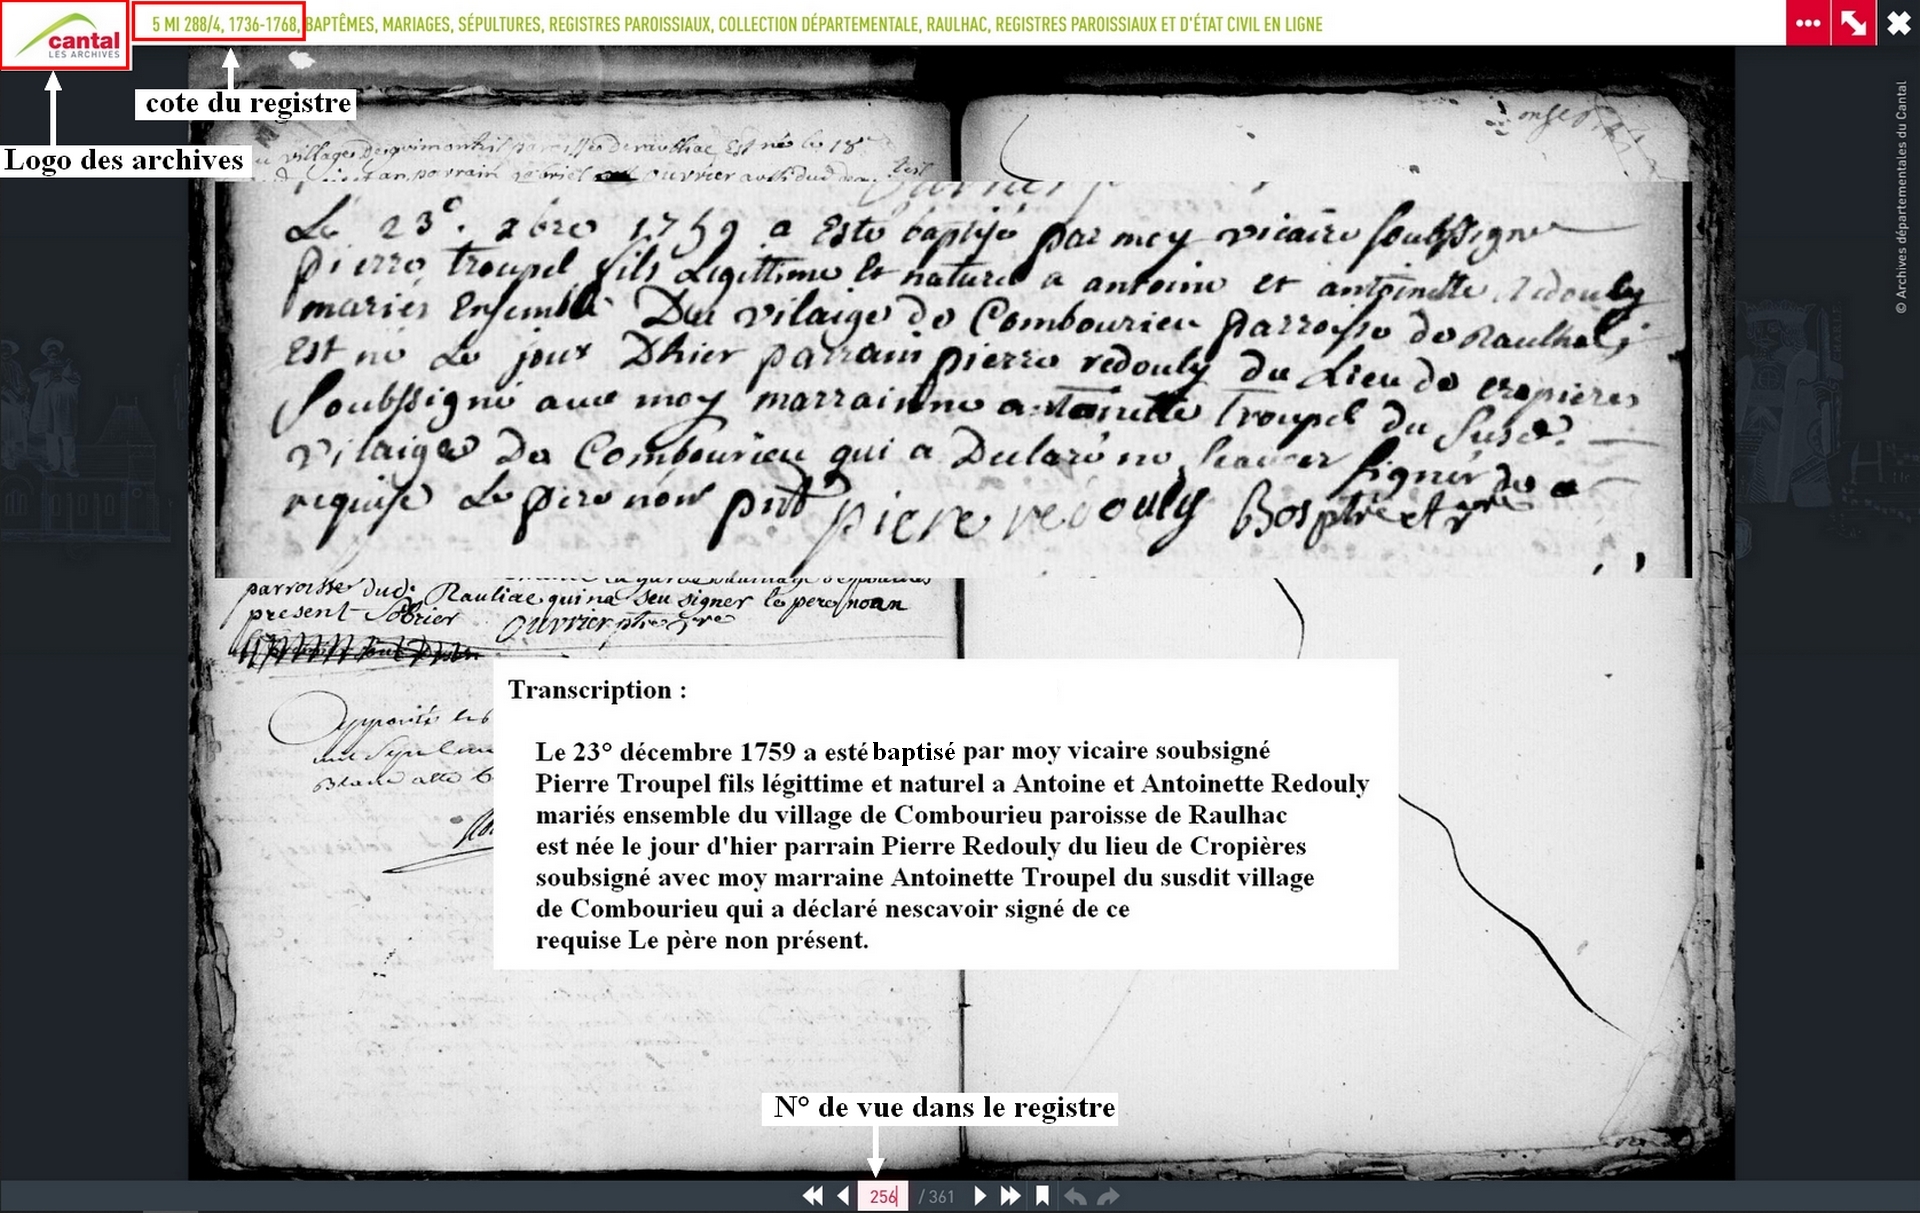 cantal
LES ARCHIVES
5 MI 288/4, 1736-1768, BAPTÊMES, MARIAGES, SÉPULTURES, REGISTRES PAROISSIAUX, COLLECTION DÉPARTEMENTALE, RAULHAC, REGISTRES PAROISSIAUX ET D'ÉTAT CIVIL EN LIGNE
cote du registre
Logo des archives
© Archives départementales du Cantal
village paroisse de est né le 18
parrain gabriel ouvrier
Le 23e. xbre 1759 a esté baptisé par moy vicaire soubssigné
pierre troupel fils legittime et naturel a antoine et antoinette redouly
mariés Ensemble Du vilaige de Combourieu parroisse de Raulhac
Est né Le jour Dhier parrain pierre redouly du Lieu de cropieres
Soubssigné avec moy marrainne antoinette troupel du susd.
vilaige De Combourieu qui a Declaré ne scavoir signer de ce
requise Le pere non pnt piere redouly Bos ptre et vre
parroisse dud. Rauliac qui na seu signer le pere noan
present Sobrier ouvrier ptre vre
Transcription :
Le 23° décembre 1759 a esté baptisé par moy vicaire soubsigné
Pierre Troupel fils légittime et naturel a Antoine et Antoinette Redouly
mariés ensemble du village de Combourieu paroisse de Raulhac
est née le jour d'hier parrain Pierre Redouly du lieu de Cropières
soubsigné avec moy marraine Antoinette Troupel du susdit village
de Combourieu qui a déclaré nescavoir signé de ce
requise Le père non présent.
N° de vue dans le registre
256 / 361